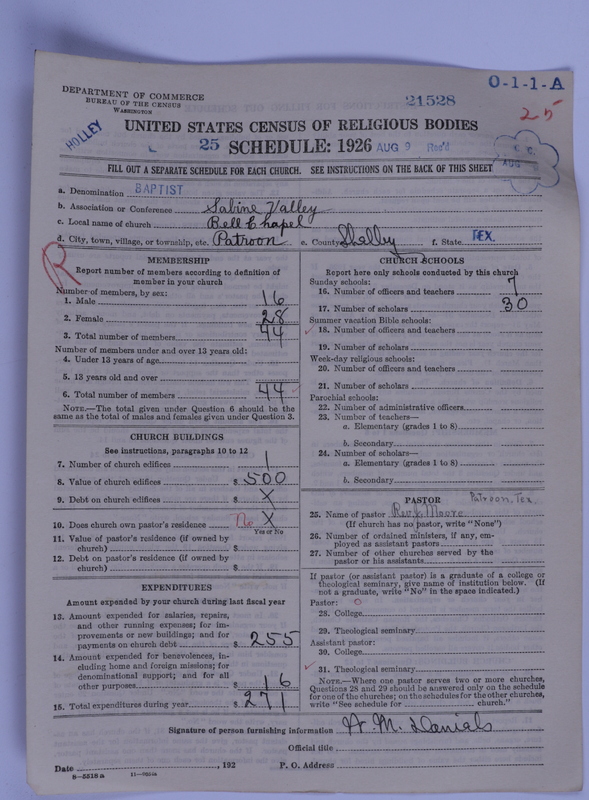 DEPARTMENT OF COMMERCE
BUREAU OF THE CENSUS
WASHINGTON
21528
O-1-1-A
25
HOLLEY
UNITED STATES CENSUS OF RELIGIOUS BODIES
25 SCHEDULE: 1926 AUG 9 Rec'd
AUG
FILL OUT A SEPARATE SCHEDULE FOR EACH CHURCH. SEE INSTRUCTIONS ON THE BACK OF THIS SHEET
a. Denomination BAPTIST
b. Association or Conference Sabine Valley
c. Local name of church Bell Chapel
d. City, town, village, or township, etc. Patroon e. County Shelby f. State TEX.
R
MEMBERSHIP
Report number of members according to definition of
member in your church
Number of members, by sex:
1. Male 16
2. Female 28
3. Total number of members 44
Number of members under and over 13 years old:
4. Under 13 years of age
5. 13 years old and over
6. Total number of members 44
NOTE.—The total given under Question 6 should be the
same as the total of males and females given under Question 3.
CHURCH BUILDINGS
See instructions, paragraphs 10 to 12
7. Number of church edifices 1
8. Value of church edifices $ 500
9. Debt on church edifices $ X
10. Does church own pastor's residence No X
Yes or No
11. Value of pastor's residence (if owned by
church) $
12. Debt on pastor's residence (if owned by
church) $
EXPENDITURES
Amount expended by your church during last fiscal year
13. Amount expended for salaries, repairs,
and other running expenses; for im-
provements or new buildings; and for
payments on church debt $ 255
14. Amount expended for benevolences, in-
cluding home and foreign missions; for
denominational support; and for all
other purposes $ 16
15. Total expenditures during year $ 271
CHURCH SCHOOLS
Report here only schools conducted by this church
Sunday schools:
16. Number of officers and teachers 7
17. Number of scholars 30
Summer vacation Bible schools:
18. Number of officers and teachers
19. Number of scholars
Week-day religious schools:
20. Number of officers and teachers
21. Number of scholars
Parochial schools:
22. Number of administrative officers
23. Number of teachers—
a. Elementary (grades 1 to 8)
b. Secondary
24. Number of scholars—
a. Elementary (grades 1 to 8)
b. Secondary
PASTOR Patroon, Tex.
25. Name of pastor Rev. Moore
(If church has no pastor, write "None")
26. Number of ordained ministers, if any, em-
ployed as assistant pastors
27. Number of other churches served by the
pastor or his assistants
If pastor (or assistant pastor) is a graduate of a college or
theological seminary, give name of institution below. (If
not a graduate, write "No" in the space indicated.)
Pastor: O
28. College
29. Theological seminary
Assistant pastor:
30. College
31. Theological seminary
NOTE.—Where one pastor serves two or more churches,
Questions 28 and 29 should be answered only on the schedule
for one of the churches; on the schedules for the other churches,
write "See schedule for church."
Signature of person furnishing information W. M. Daniels
Official title
Date , 192 P. O. Address
8-5518 a